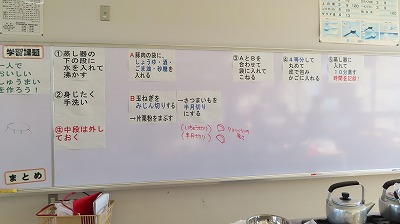 学習課題
一人で
おいしい
しゅうまい
を作ろう!
まとめ
①蒸し器の
下の段に
水を入れて
沸かす
②身じたく
手洗い
③中段は外し
ておく
A 豚肉の袋に、
しょうゆ・酒・
ごま油・砂糖を
入れる
B 玉ねぎを
みじん切りする
→片栗粉をまぶす
→さつまいもを
半月切り
にする
(いちょう切り)
(半月切り)
③AとBを
合わせて
袋に入れて
こねる
④4等分して
丸めて
皮で包み
かごに入れる
⑤蒸し器に
入れて
10分蒸す
時間を記録!